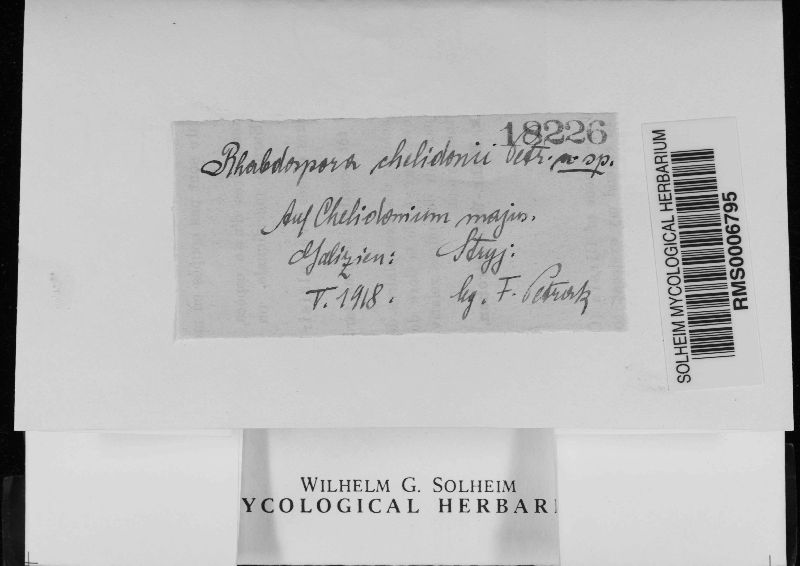 18226
Rhabdospora chelidonii Petr. n. sp.
Auf Chelidonium majus.
Galizien: Stryj.
V. 1918. lg. F. Petrak
SOLHEIM MYCOLOGICAL HERBARIUM
RMS0006795
WILHELM G. SOLHEIM
YCOLOGICAL HERBARI